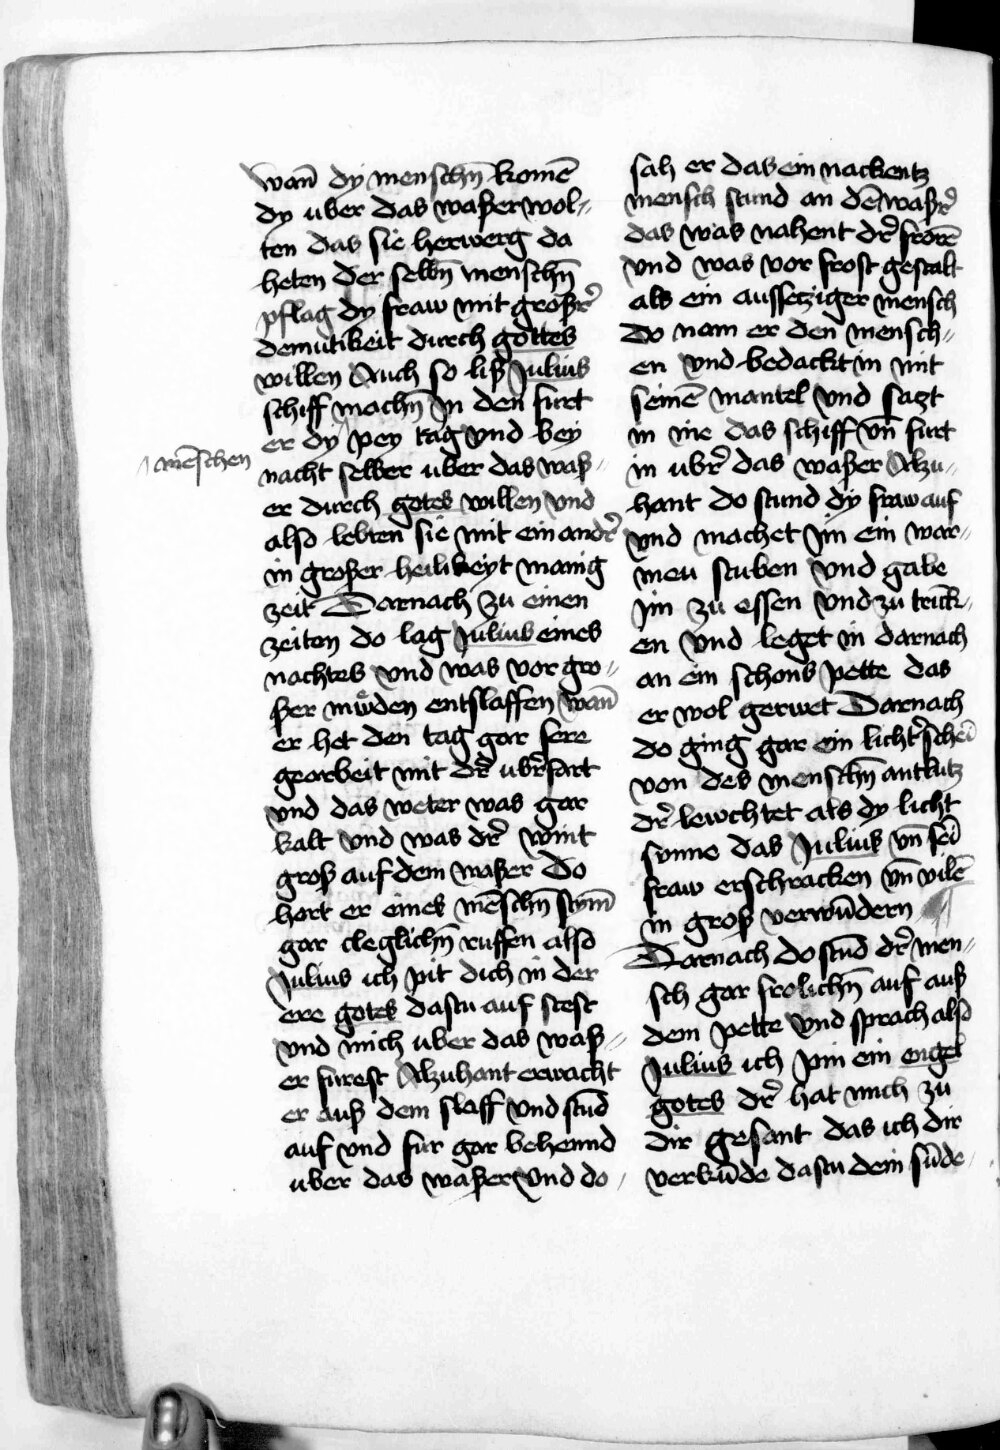 wan̄ dy menschn̄ komē
dy uber das waßer wol⸗
ten das sie herwerg da
heten der selbn̄ menschn̄
pflag dy fraw mit großr̄
demutikeit durch gottes
willen Auch so liß Julius
schiff machn̄ Jn den furt
er dy pey tag vnd bey
mēschen
nacht selber uber das waß⸗
er durch gotes willen vnd
also lebten sie mit ein andr̄
in großer heilikeyt manig
zeit Darnach zu einen
zeiten do lag Julius eines
nachtes vnd was vor gro⸗
ßer muͦden entslaffen wan̄
er het den tag gar sere
gearbeit mit dr̄ ubr̄fart
vnd das weter was gar
kalt vnd was dr̄ wint
groß auf dem waßer Do
hort er eines mēschn̄ stym̄
gar cleglichn̄ ruffen also
Julius ich pit dich in der
ere gotes dastu auf stest
vnd mich uber das waß⸗
er furest Alzuhant erwacht
er auß dem slaff vnd stūd
auf vnd fur gar behennd
uber das waßer vnd do
sah er das ein nackentz
mensch stund an dē waßr̄
das was nahent dr̄ frorē
vnd was vor frost gestalt
als ein aussetziger mensch
Do nam er den mensch⸗
en vnd bedackt in mit
seinē mantel vnd sazt
in ine das schiff vn̄ furt
in ubr̄ das waßer Alzu⸗
hant do stund dy fraw auf
vnd machet Jm ein war⸗
men stuben vnd gabe
Jm zu essen vnd zu trinck⸗
en vnd leget in darnach
an ein schons pette das
er wol gerwet Darnach
do ging gar ein lichtr̄ schei
von des menschn̄ antlutz
dr̄ lewchtet als dy licht
sunne das Julius vn̄ sei
fraw erschracken vn̄ vilē
in groß verwūdern
Darnach do stūd dr̄ men⸗
sch gar frolichn̄ auf auß
dem pette vnd sprach also
Julius ich pin ein engel
gotes dr̄ hat mich zu
dir gesant das ich dir
verkūde dastu dein sūde